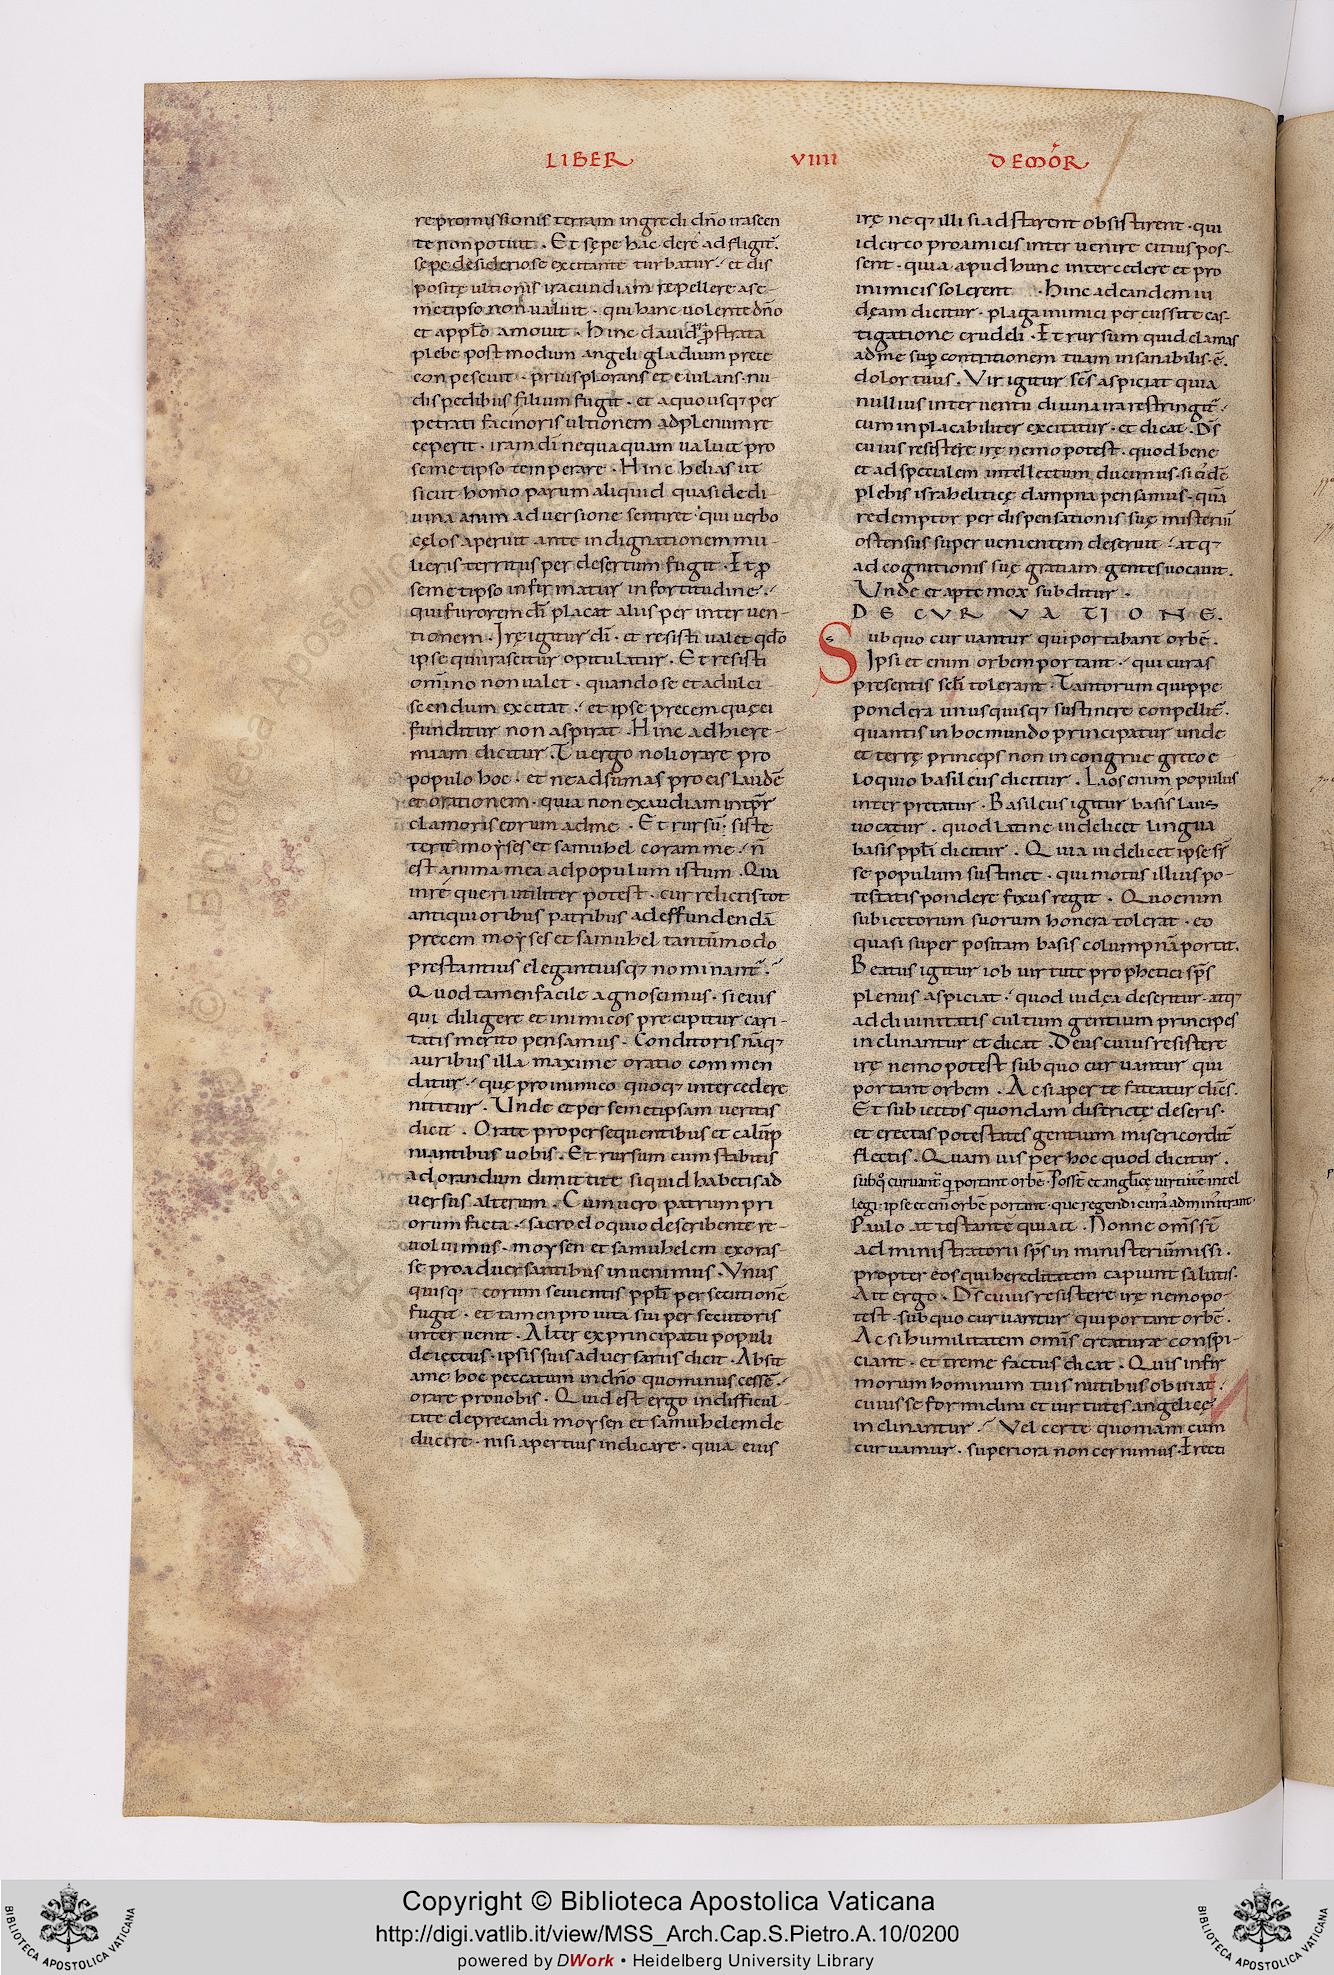 LIBER VIIII DE MOR̄
repromissionis terram ingredi dn̄o irascen
te non potuit . Et sępe hac de re adfligit̄ .
sępe desideriose excitante turbatur . et dis
positę ultionis iracundiam repellere a se
metipso non valuit . qui hanc volente dn̄o
et app̄lo amovit . Hinc david p̄strata
plebe postmodum angeli gladium prece
conpescuit . prius plorans et eiulans . nu
dis pedibus filium fugit . et a quo usq; per
petrati facinoris ultionem ad plenum re
ceperit . iram dī nequaquam valuit pro
semetipso temperare . Hinc helias ut
sicut homo parum aliquid quasi de di
vina animadversione sentiret . qui verbo
cęlos aperuit ante indignationem mu
lieris territus per desertum fugit . Et p̄
semetipso infirmatur in fortitudine .
qui furorem dī placat aliis per interven
tionem . Irę igitur dī . et resisti valet qdo
ipse qui irascitur opitulatur . Et resisti
omnino non valet . quando se et ad ulci
scendum excitat . et ipse precem quę ei
funditur non aspirat . Hinc ad hiere
miam dicitur . Tu ergo noli orare pro
populo hoc . et ne adsumas pro eis laudē
et orationem . quia non exaudiam in tp̄r
clamoris eorum ad me . Et rursū . siste
terit moyses et samuhel coram me . n̄
est anima mea ad populum istum . Qui
in rē queri utiliter potest . cur relictis tot
antiquioribus patribus ad effundendā
precem moyses et samuhel tantūmodo
prestantius elegantiusq; nominant̄ .
Quod tamen facile agnoscimus . si eius
qui diligere et inimicos precipitur cari
tatis merito pensamus . Conditoris nāq;
auribus illa maxime oratio commen
datur . quę pro inimico quoq; intercedere
nititur . Unde et per semetipsam veritas
dicit . Orate pro persequentibus et calūp
niantibus vobis . Et rursum cum stabitis
ad orandum dimittite si quid habetis ad
versus alterum . Cum vero patrum pri
orum facta . sacro eloquio describente re
volvimus . moysen et samuhelem exoras
se pro adversantibus invenimus . Unus
quisq; eorum sevientis ppłi persecutionē
fugit . et tamen pro vita sui persecutoris
intervenit . Alter ex principatu populi
deiectus . ipsis suis adversariis dicit . Absit
a me hoc peccatum in dn̄o quominus cessē .
orare pro vobis . Quid est ergo in difficul
tate deprecandi moysen et samuhelem de
ducere . nisi apertius indicare . quia eius
irę neq; illi si adstarent obsisterent . qui
idcirco pro amicis intervenire citius pos
sent . quia apud hunc intercedere et pro
inimicis solerent . Hinc ad eandem iu
dęam dicitur . plaga inimici percussi te cas
tigatione crudeli . Et rursum quid clamas
ad me sup̄ contritionem tuam insanabilis . ē .
dolor tuus . Vir igitur sc̄s aspiciat quia
nullius interventu divina ira restringit̄ .
cum inplacabiliter excitatur . et dicat . Ds̄
cuius resistere irę nemo potest . quod bene
et ad specialem intellectum ducimus . si eīdē
plebis israheliticę dampna pensamus . quā
redemptor per dispensationis suę misteriū
ostensus superveniente deseruit . atq;
ad cognitionis suę gratiam gentes vocavit .
Unde et apte mox subditur .
DE CVRVATIONE .
Sub quo curvantur qui portabant orbē .
Ipsi etenim orbem portant . qui curas
presentis sclī tolerant . Tantorum quippe
pondera unusquisq; sustinere conpellit̄ .
quantis in hoc mundo principatur unde
et terrę princeps non incongrue greco e
loquio basileus dicitur . Laos enim populus
interpretatur . Basileus igitur basis laus
vocatur . quod latine videlicet lingua
basis ppłi dicitur . Quia videlicet ipse sr̄
se populum sustinet . qui motus illius po
testatis pondere fixus regit . Quo enim
subiectorum suorum honera tolerat . eo
quasi super positam basis columpnā portit .
Beatus igitur iob virtute prophetici sps̄
plenus aspiciat . quod iudęa deseritur . atq;
ad divinitatis cultum gentium principes
inclinantur et dicat . Deus cuius resistere
irę nemo potest sub quo curvantur qui
portant orbem . Ac si aperte fateatur dices .
Et subiectos quondam districtę deseris .
et erectas potestates gentium misericordit̄
flectis . Quamvis per hoc quod dicitur .
sub q̊ curvant̄ q̇ portant orbē . Posst̄ et anglicę virtutē intel
legi . ipse etenī orbē portant . que regendi curā administrant .
Paulo attestante qui ait . Nonne oms̄ st̄
administratorii sps̄ in ministeriū missi .
propter eos qui hereditatem capiunt salutis .
Ait ergo . Ds̄ cuius resistere irę nemo po
test . sub quo curvantur qui portant orbē .
Ac si humilitatem omīs creaturae conspi
ciant . et treme factus dicat . Quis infir
morum hominum tuis nutibus obviat .
cuius se formidini et virtutes angelicę
inclinantur . Vel certe quoniam cum
curvamur . superiora non cernimus . Erecti
Copyright © Biblioteca Apostolica Vaticana
http://digi.vatlib.it/view/MSS_Arch.Cap.S.Pietro.A.10/0200
powered by DWork • Heidelberg University Library
BIBLIOTECA APOSTOLICA VATICANA
BIBLIOTECA APOSTOLICA VATICANA